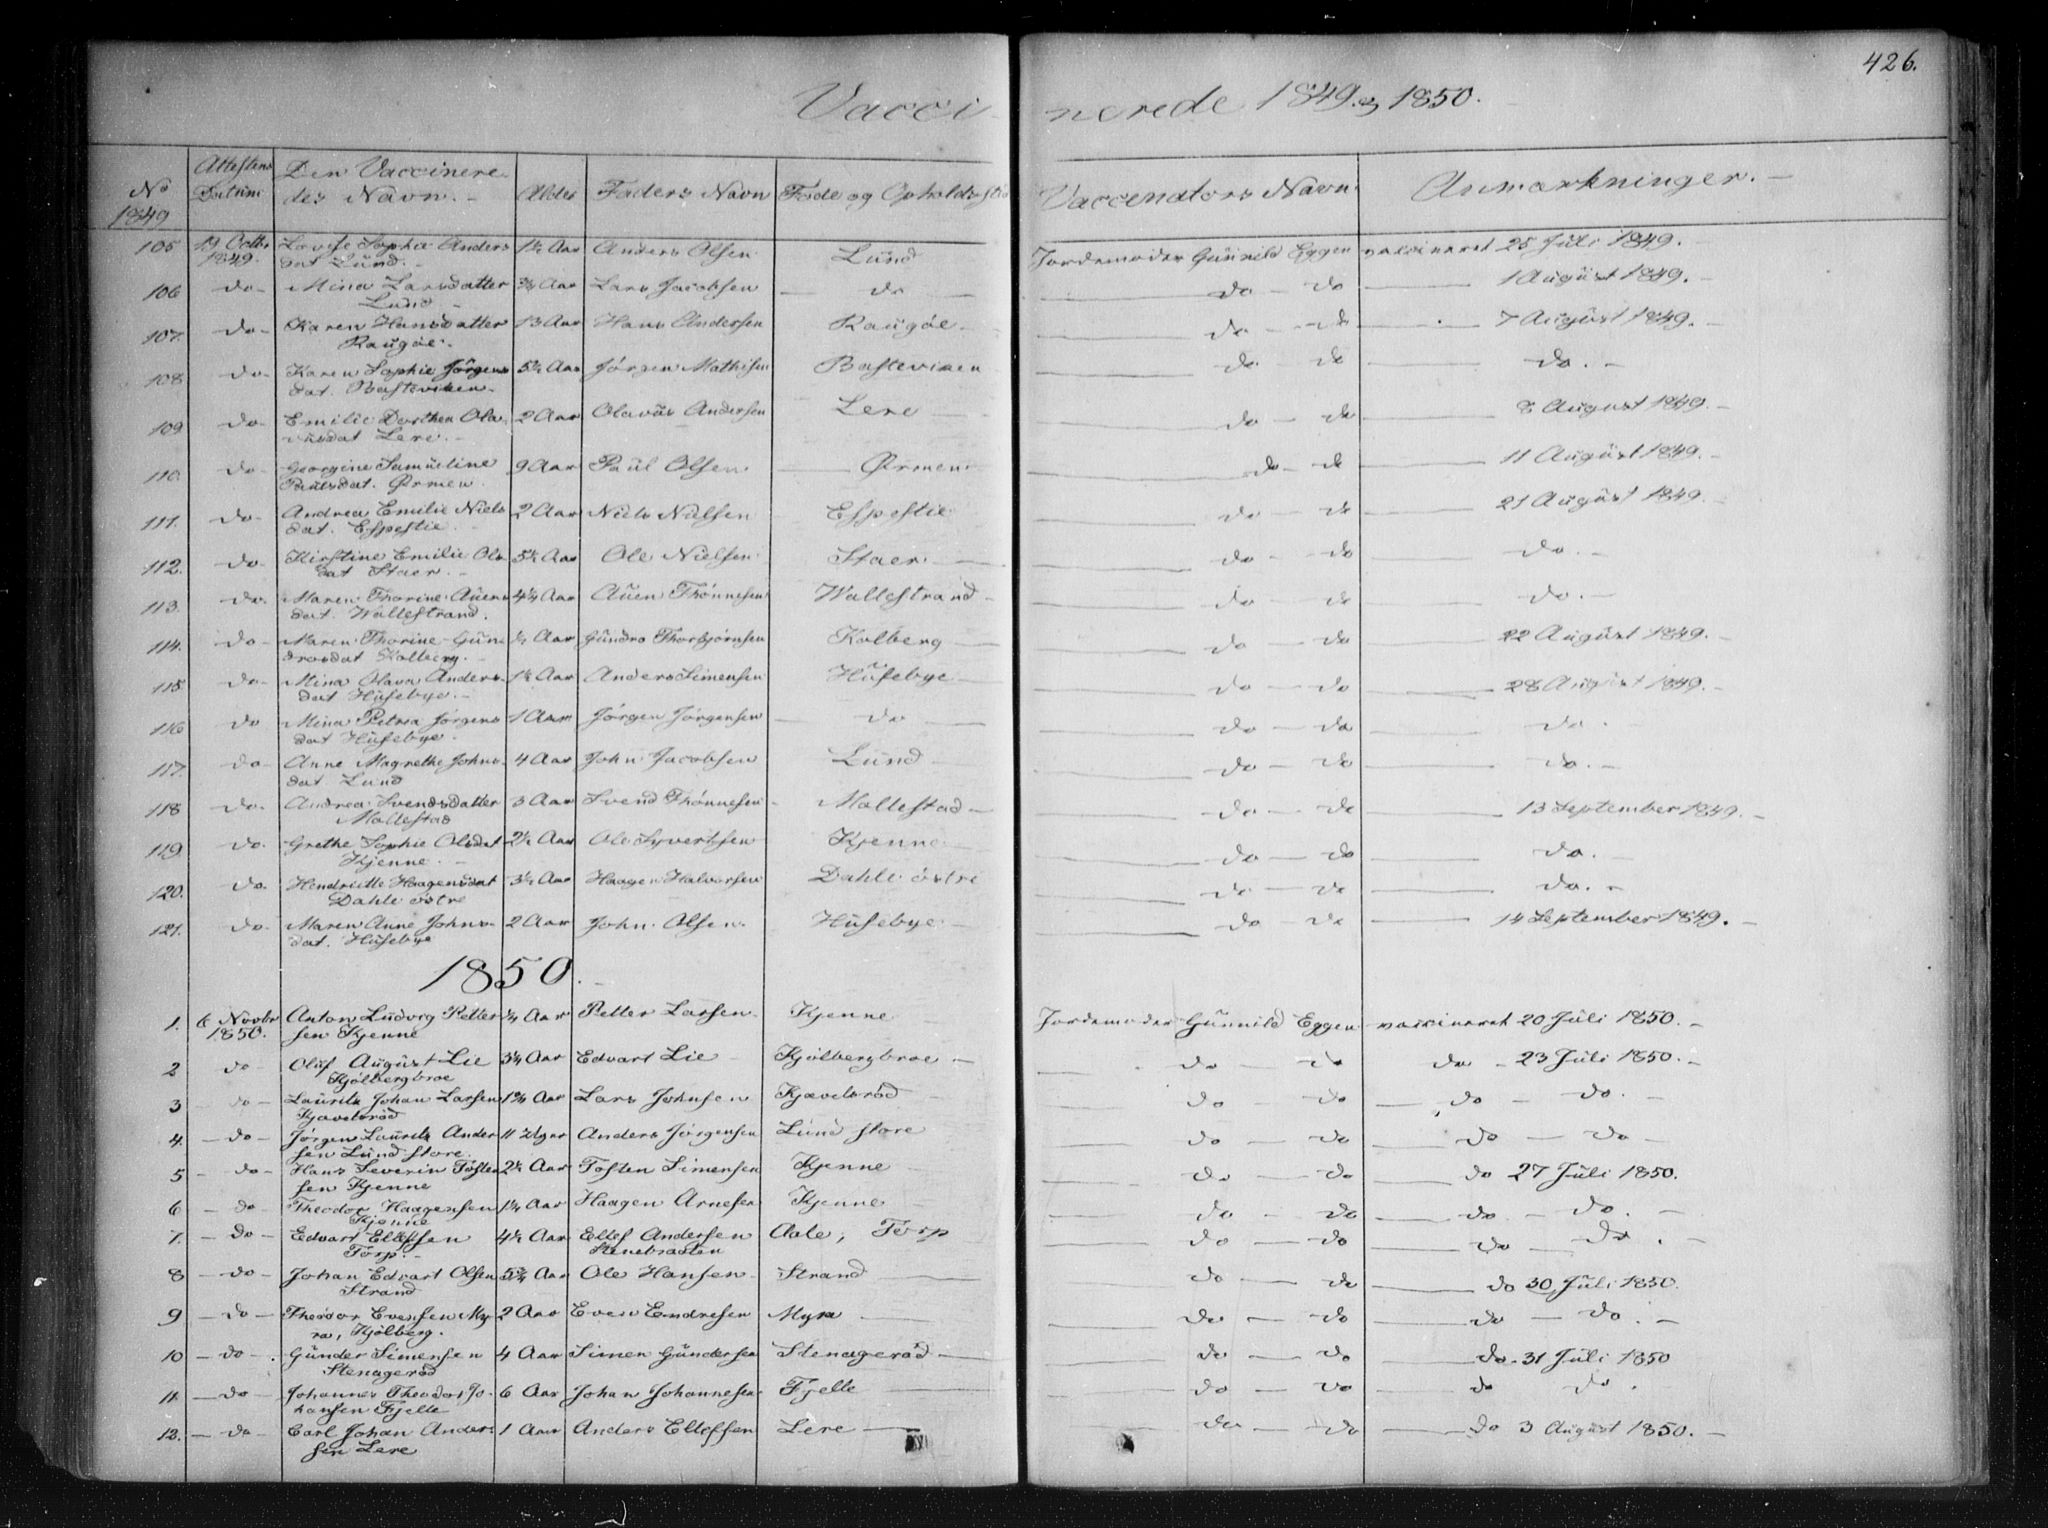 426.
Vacci nerede 1849 & 1850.
No 1849 Attestens Datum Den Vaccinere des Navn. Alder Faders Navn Føde og Opholdssted Vaccinators Navn Anmærkninger.
105 19 Octbr 1849. Lovise Sophie Anders 1½ Aar Anders Olsen Lund Jordemoder Gunnild Eggen vaccineret 25 Juli 1849.
dat Lund.
106 do Mina Larsdatter ¾ Aar Lars Jacobsen do do do 1 August 1849.
Lund
107. do Karen Hansdatter 13 Aar Hans Andersen Raugøe do do 7 August 1849.
Raugøe.
108 do Karen Sophie Jørgens 5½ Aar Jørgen Mathisen Basteviken do do do.
dat. Basteviken
109 do Emilie Dorthea Ola 2 Aar Olavus Andersen Lere do do 8 August 1849.
vusdat Lere.
110. do Georgine Samueline 9 Aar Paul Olsen Ørmen do do 11 August 1849.
Paulsdat. Ørmen.
111. do Andrea Emilie Niels 2 Aar Niels Nielsen Espestie do do 21 August 1849.
dat. Espestie
112. do Kirstine Emilie Ols 5½ Aar Ole Nielsen Staer do do do.
dat Staer.
113. do. Maren Thorine Auens 4¼ Aar Auen Thønnesen Wallestrand do do do.
dat. Wallestrand.
114. do Maren Thorine Gun ½ Aar Gundro Thorbjørnsen Kolberg do do 22 August 1849.
drosdat Kolberg.
115. do Mina Olava Anders 1½ Aar Anders Simensen Husebye do do 28 August 1849.
dat Husebye.
116 do Mina Petrea Jørgens 1 Aar Jørgen Jørgensen do do do do.
dat Husebye.
117. do Anne Magrethe Johns 4 Aar John Jacobsen Lund do do do.
dat Lund
118 do. Andrea Svendsdatter 3 Aar Svend Thønnesen Mallestad do do 13 September 1849.
Mallestad
119. do. Grethe Sophie Olsdat 2½ Aar Ole Syvertsen Kjenne do do do.
Kjenne.
120. do. Hendriette Haagensdat 3½ Aar Haagen Halvorsen Dahle østre do do do.
Dahle østre
121. do. Maren Anne Johns 2 Aar John Olsen Husebye do do 14 September 1849.
dat. Husebye
1850.
1. 6 Novbr 1850. Anton Ludvig Petter ¾ Aar Petter Larsen Kjenne Jordemoder Gunnild Eggen vaccineret 20 Juli 1850.
sen Kjenne
2 do Oluf August Lie 3¼ Aar Edvart Lie Kjølbergbroe do do do 23 Juli 1850.
Kjølbergbroe
3 do Lauritz Johan Larsen 1¾ Aar Lars Johnsen Kjavelsrød do do do do.
Kjavelsrød
4. do Jørgen Lauritz Ander 11 Uger Anders Jørgensen Lund store do do do do
sen Lund store.
5 do Hans Severin Tosten 2½ Aar Tosten Simensen Kjenne do do do 27 Juli 1850.
sen Kjenne
6 do Theodor Haagensen 1¼ Aar Haagen Arnesen Kjenne do do do do.
Kjenne
7. do Edvart Ellefsen 4½ Aar Ellef Andersen Aale, Torp do do do do.
Torp. Stenebraaten
8 do Johan Edvart Olsen 5¾ Aar Ole Hansen Strand do do do 30 Juli 1850.
Strand
9 do Theodor Evensen My 2 Aar Even Endresen Myra do do do do.
ra, Kjølberg.
10 do Gunder Simensen 4 Aar Simen Gundersen Stenagerød do do do 31 Juli 1850
Stenagerød
11. do Johannes Theodor Jo 6 Aar Johan Johannesen Fjelle do do do do.
hansen Fjelle
12. do Carl Johan Anders 1 Aar Anders Ellefsen Lere do do do 3 August 1850.
sen Lere